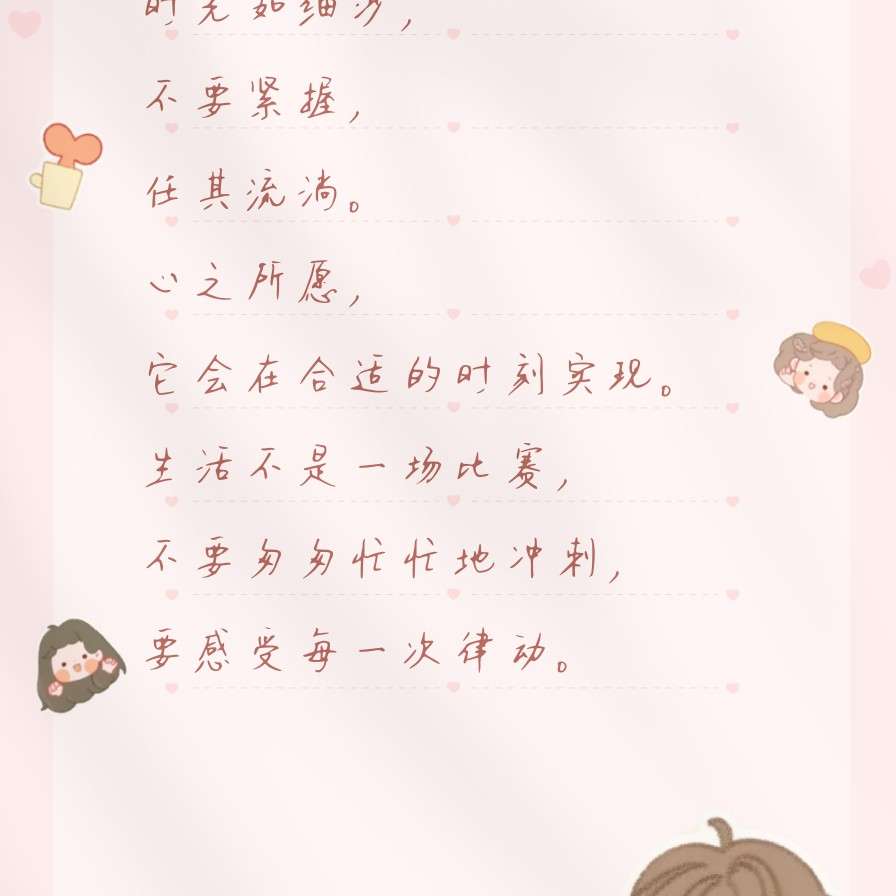 时光如细沙，
不要紧握，
任其流淌。
心之所愿，
它会在合适的时刻实现。
生活不是一场比赛，
不要匆匆忙忙地冲刺，
要感受每一次律动。